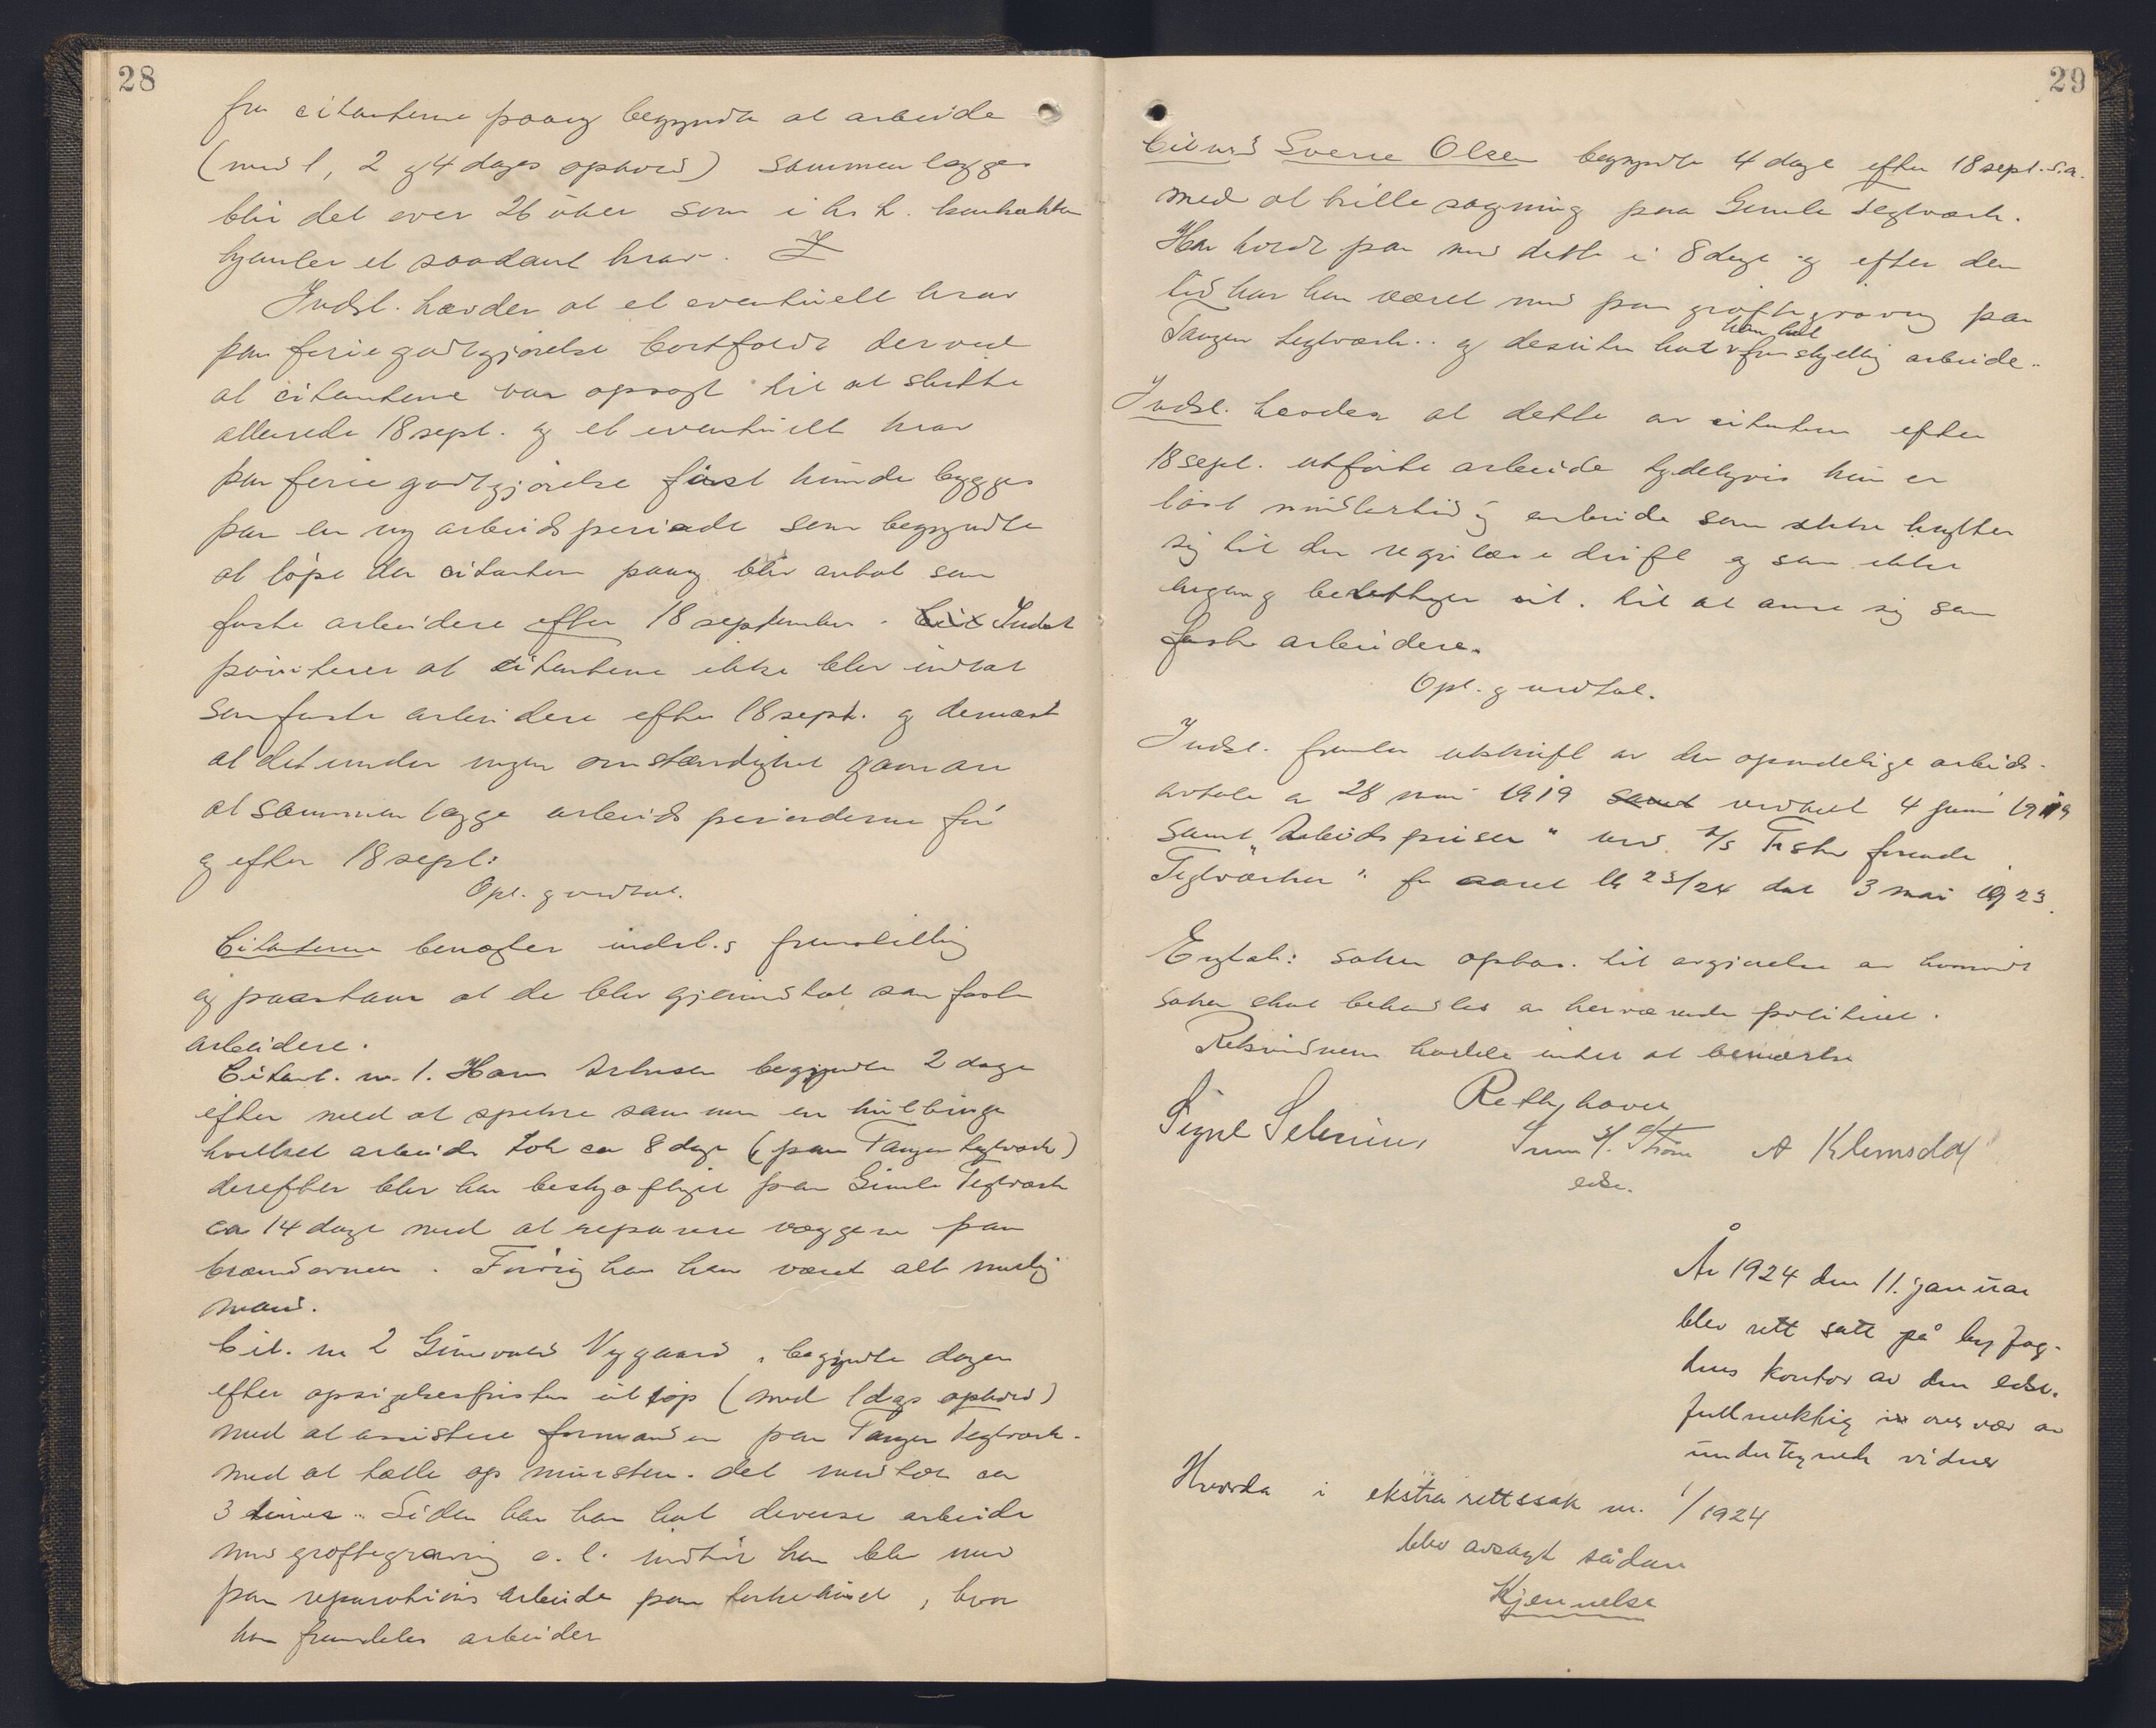 28
fra citanterne paany begyndte at arbeide
(med 1, 2 og 4 dages ophold) sammenlægges
blir det over 26 uker som i h. t. kontrakten
hjemler et saadant krav.
Indst. hævder at et eventuelt krav
paa feriegodtgjørelse bortfaldt derved
at citanterne var opsagt til at slutte
allerede 18 sept. og et eventuelt krav
paa feriegodtgjørelse først kunde bygges
paa en ny arbeidsperiode som begyndte
at løpe da citanterne paany blev antat som
faste arbeidere efter 18 september. Indst
pointerer at citanterne ikke blev indtat
som faste arbeidere efter 18 sept. og dernæst
at det under ingen omstændighet gaar an
at sammenlægge arbeidsperioderne før
og efter 18 sept.
Opl. og vedtat.
Citanterne benegter indst.s fremstilling
og paastaar at de blev gjenindtat som faste
arbeidere.
Citant. nr. 1. Hans begyndte 2 dage
efter med at spekke sammen en kulbinge
hvilket arbeide tok ca 8 dage (paa Tangen teglverk)
derefter blev han beskjæftiget paa Gimle Teglverk
ca 14 dage med at reparere væggene paa
brændovnen. Forøvrig har han været alt mulig
mand.
Cit. nr 2 Nygaard, begyndte dagen
efter opsigelsesfristens utløp (med 1 dags ophold)
med at assistere formanden paa Tangen teglverk.
med at tælle op mursten. det medtok ca
3 timer. Siden har han hat diverse arbeide
med grøftegravning o. l. indtil han blev med
paa reparations arbeide paa tørkehuset, hvor
han fremdeles arbeider
29
Cit nr 3 Sverre Olsen begyndte 4 dage efter 18 sept. s.a.
med at stille sagmug paa Gimle Teglverk.
Han holdt paa med dette i 8 dage og efter den
tid har han været med paa grøftegravning paa
Tangen teglverk og desuten har han hat forskjellig arbeide.
Indst. hævder at dette av citanterne efter
18 sept. utførte arbeide tydeligvis kun er
løst midlertidig arbeide som ikke knytter
sig til den regulære drift og som ikke
engang berettiger cit. til at anse sig som
faste arbeidere.
Opl. og vedtat.
Indst. fremla utskrift av den oprindelige arbeids-
avtale av 28 mai 1919 vedtat 4 juni 1919
samt "Arbeids priser" ved A/S forenede
Teglverker" for aaret 1923/24 dat 3 mai 1923.
Enghet: saken optas til avgjørelse av hvorvidt
saken skal behandles av herværende politiret.
Retsvidnerne hadde intet at bemerke
Retten hævet
Signe Selenius Strøm A Klemsdal
edsv.
År 1924 den 11. januar
blev rett satt på byfog-
dens kontor av den edsv.
fullmektig i overvær av
undertegnede vidner
Hvorda i ekstrarettssak nr. 1/1924
blev avsagt sådan
Kjennelse